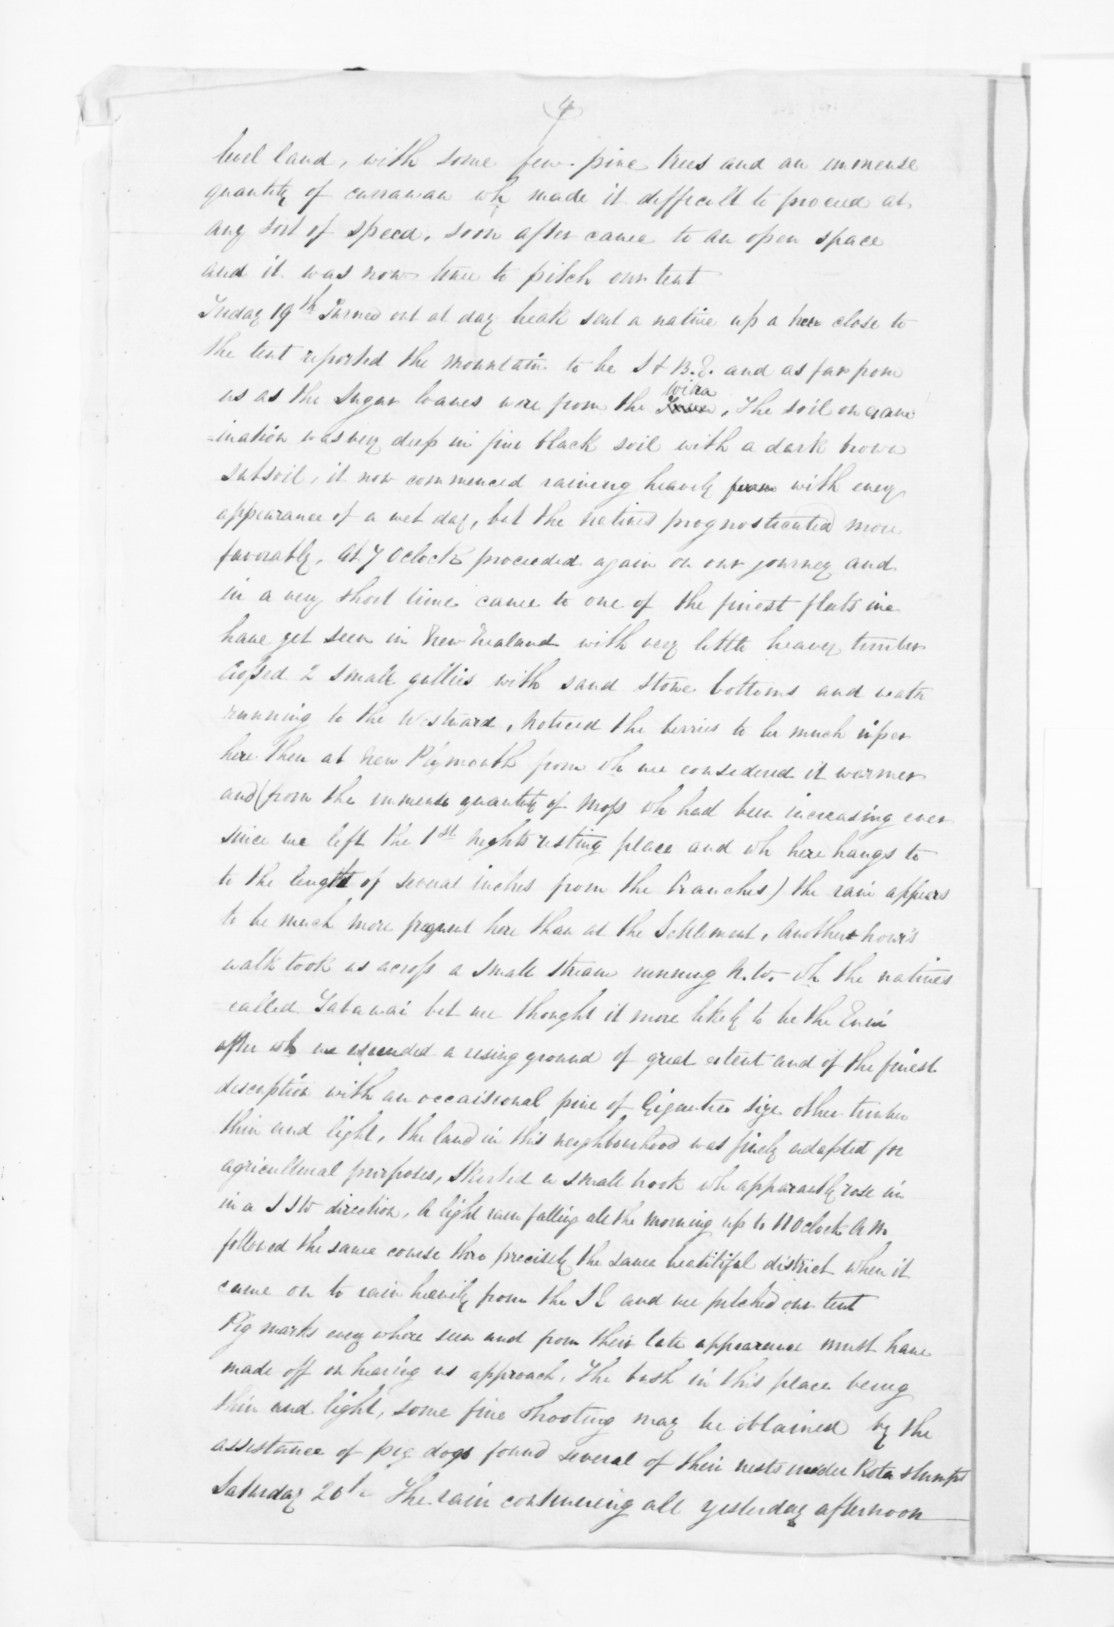 (4)
level land, with some few pine trees and an immense
quantity of carrawau wh made it difficult to proceed at
any sort of speed, soon after came to an open space
and it was now time to pitch our tent
19th Turned out at day break sent a native up a tree close to
the tent reported the mountain to be S & B.E. and as far from
us as the Sugar loaves were from the Wira, The soil on exam
-ination was very deep in fine black soil with a dark brown
subsoil, it now commenced raining heavily with every
appearance of a wet day, but the natives prognosticated more
favorably, At 7 Oclock proceeded again on our journey and
in a very short time came to one of the finest flats we
have yet seen in New Zealand with very little heavy timber
Crossed 2 small gullies with sand stone bottoms and water
running to the Westward, noticed the berries to be much riper
here then at New Plymouth from wh we considered it warmer
and (from the immense quantity of moss wh had been increasing ever
since we left the 1st nights resting place and wh here hangs to
to the length of several inches from the branches) the rain appears
to be much more frequent here than at the Settlement, Another hours
walk took us across a small stream running N.W. wh the natives
called but we thought it more likely to be the
after wh we ascended a rising ground of great extent and of the finest
description with an occaisional pine of Gigantic size other timber
thin and light, the land in this neighbourhood was finely adapted for
agricultural purposes, Skirted a small brook wh apparently rose in
in a S S W direction, A light rain falling all the morning up to 11 Oclock A M,
followed the same course thro precisely the same beautiful district when it
came on to rain heavily from the S E and we pitched our tent
Pig marks every where seen and from their late appearance must have
made off on hearing us approach, The bush in this place being
thin and light, some fine shooting may be obtained by the
assistance of pig dogs found several of their nests under Rata stumps
Saturday 20th The rain continuing all yesterday afternoon